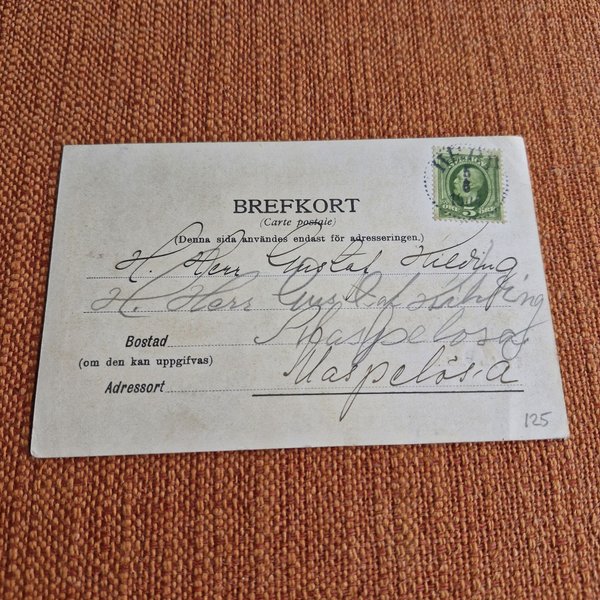 BREFKORT
(Carte postale)
(Denna sida användes endast för adresseringen.)
H. Herr Gustaf Hilding
H. Herr Gustaf Hilding
Bostad Maspelösa
(om den kan uppgifvas)
Adressort Maspelösa
SVERIGE
5
125